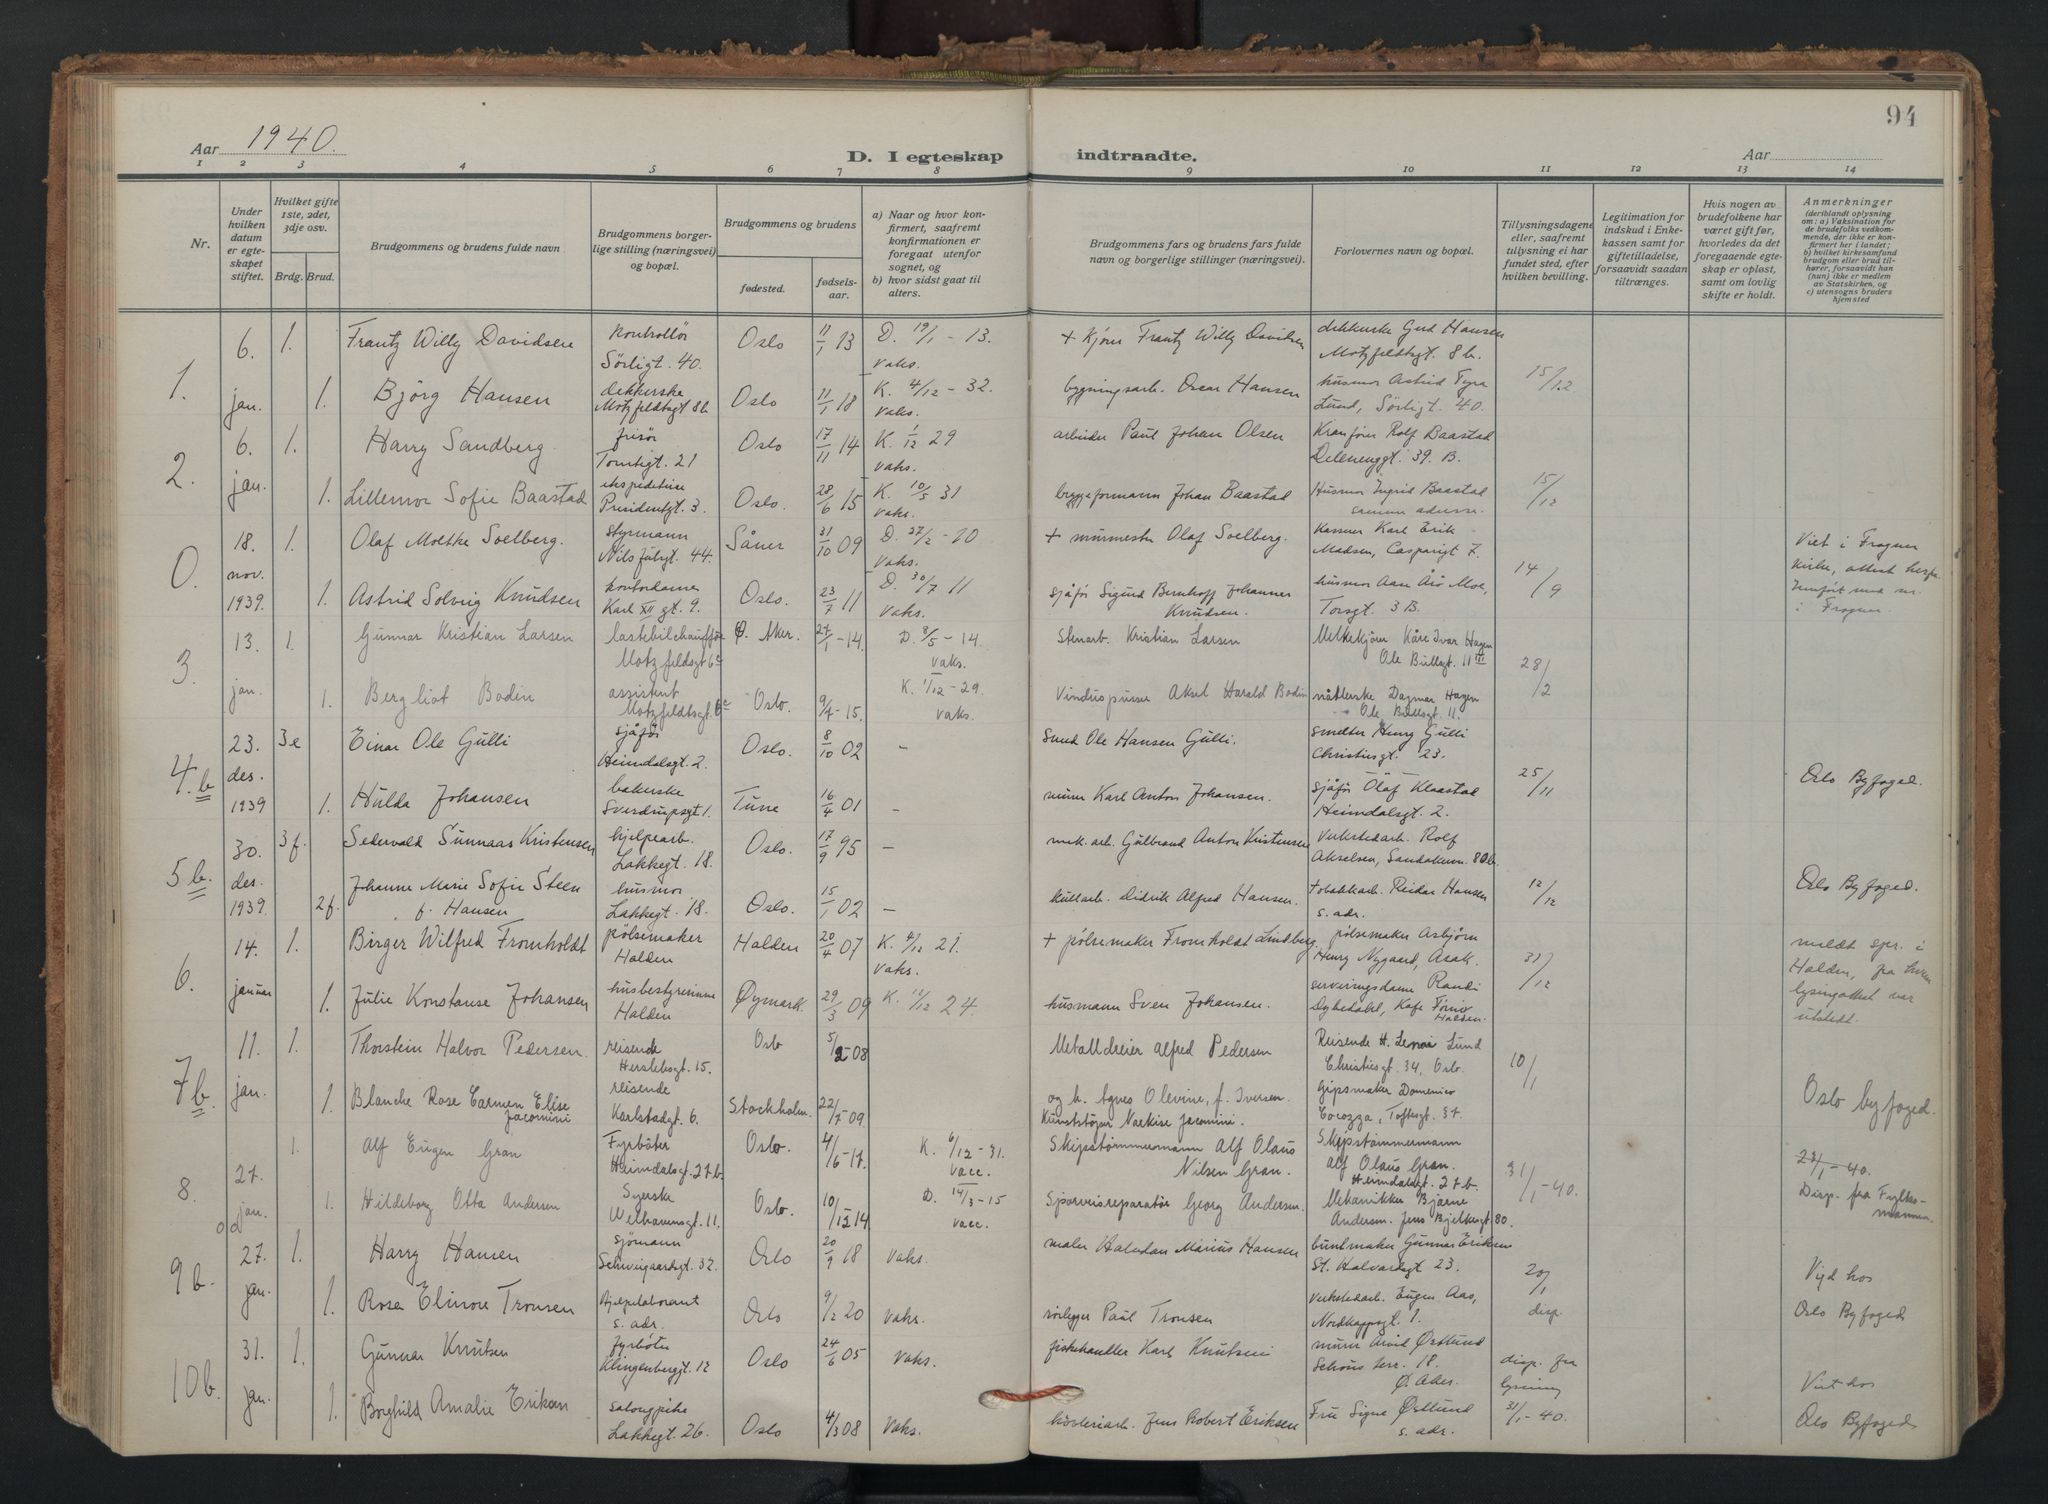 94
Aar 1940.
D. I egteskap indtraadte.
Aar
1 2 3 4 5 6 7 8 9 10 11 12 13 14
Nr.
Under hvilken datum er egteskapet stiftet.
Hvilket gifte 1ste, 2det, 3dje osv.
Brdg. Brud.
Brudgommens og brudens fulde navn
Brudgommens borgerlige stilling (næringsvei) og bopæl.
Brudgommens og brudens
fødested.
fødselsaar.
a) Naar og hvor konfirmert, saafremt konfirmationen er foregaat utenfor sognet, og
b) hvor sidst gaat til alters.
Brudgommens fars og brudens fars fulde navn og borgerlige stillinger (næringsvei).
Forlovernes navn og bopæl.
Tillysningsdagene eller, saafremt tillysning ei har fundet sted, efter hvilken bevilling.
Legitimation for indskud i Enkekassen samt for giftetilladelse, forsaavidt saadan tiltrænges.
Hvis nogen av brudefolkene har været gift før, hvorledes da det foregaaende egteskap er opløst, samt om lovlig skifte er holdt.
Anmerkninger
(deriblandt oplysning om: a) Vaksination for de brudefolks vedkommende, der ikke er konfirmert her i landet; b) hvilket kirkesamfund brudgom eller brud tilhører, forsaavidt han (hun) ikke er medlem av Statskirken, og c) utensogns bruders hjemsted
1. 6. jan. 1. Frantz Willy Davidsen kontrollør Sörligt. 40. Oslo 11/1 13 D. 19/1 - 13. vaks. + Kjører Frantz Willy Davidsen dekkerske Gerd Hansen Motzfeldtsgt. 8 b. 15/12
1. Björg Hansen dekkerske Motzfeldtsgt 8b Oslo 11/1 18 K. 4/12 - 32. vaks. bygningsarb. Oscar Hansen husmor Astrid Tyra Lund, Sörligt. 40.
2. 6. jan. 1. Harry Sandberg. frisör Tomtegt. 21 Oslo 17/11 14 K. 1/12 29 vaks. arbeider Paul Johan Olsen Kranfører Rolf Baastad Delenenggt. 39. B. 15/12
1. Lillemor Sofie Baastad ekspeditrise Presidentgt. 3. Oslo. 28/6 15 K. 10/5 31 vaks. byggeformann Johan Baastad Husmor Ingrid Baastad samme adresse.
0. 18. nov. 1939. 1. Olaf Moltke Soelberg. styrmann Nils Juelsgt. 44. Såner 31/10 09 D. 27/2 - 10 vaks. + murmester Olaf Soelberg. Kasserer Karl Erik Madsen, Casparigt 7. 14/9 Viet i Frogner kirke,
1. Astrid Solveig Knudsen kontordame Karl XII gt. 9. Oslo. 23/7 11 D. 30/7 11 vaks. sjåfør Sigurd Bernhoff Johannes Knudsen. husmor Aase Moe, Torsgt. 3 B. i Frogner.
3. 13. jan. 1. Gunnar Kristian Larsen lastebilchauffør Motzfeldsgt 6c Ø. Aker. 27/1 - 14. D. 8/5 - 14. vaks. Stenarb. Kristian Larsen Melkekjører Kåre Ivar Hagen Ole Bullsgt. 11 III 28/2
1. Bergliot Bodin assistent Motzfeldtsgt. 6c Oslo. 9/7 - 15. K. 1/12 - 29. vaks. Vinduspusser Aksel Harald Bodin nåtlerske Dagmar Hagen Ole Bullsgt. 11.
4. b 23. des. 1939 3 e Einar Ole Gulli sjåfør Heimdalsgt. 2. Oslo. 8/10 02 - smed Ole Hansen Gulli. Henry Gulli Christiesgt. 23. 25/11 Oslo Byfoged.
1. Hulda Johansen bakerske Sverdrupsgt 1. Tune 16/4 01 - murer Karl Anton Johansen. sjåfør Olaf Klaastad Heimdalsgt. 2.
5 b. 30. des. 1939 3 f. Sedervald Sunnaas Kristensen hjelpearb. Lakkegt. 18. Oslo. 17/9 95 - mek. arb. Gulbrand Anton Kristensen Verkstedarb. Rolf Akselsen, Sandakerv. 80b. 12/12 Oslo Byfoged.
2 f. Johanne Marie Sofie Steen f. Hansen husmor Lakkegt. 18. Oslo. 15/1 02 - kullarb. Didrik Alfred Hansen. tobakkarb. Reidar Hansen s. adr.
6. 14. januar 1. Birger Wilfred Fromholdt pølsemaker Halden Halden 20/4 07 K. 4/12 21. vaks. + pølsemaker Fromholdt Lindberg. pølsemaker Asbjørn Henry Nygaard, Asak. 31/12 meldt spr. i Halden, fra hvem lysingattest var utstedt.
1. Julie Konstanse Johansen husbestyrerinne Halden Øymark 29/3 09 K. 12/12 24. husmann Sven Johansen. serveringsdame Randi Dybedahl, Kafe Halden.
7 b. 11. jan. 1. Thorstein Halvor Pedersen. reisende Herslebsgt. 15. Oslo 5/2 - 08 Metalldreier Alfred Pedersen og h. Agnes Olevine, f. Iversen. Reisende H. Lund Christiesgt. 34, Oslo. 10/1 Oslo byfoged.
1. Blanche Rose Carmen Elise Jacomini reisende Karlstadgt. 6. Stockholm. 22/7 - 09. Kunststøper Narkise Jacomini. Gipsmaker Domenico Corozza, Toftesgt. 37.
8. 27. jan. 1. Alf Eugen Gran Fyrbøter Heimdalsgt. 27 b. Oslo. 4/6 - 17. K. 6/12 - 31. vacc. Skipstømmermann Alf Olaus Nilsen Gran. Skipstømmermann Alf Olaus Gran. Heimdalsgt. 27 b. 31/1 - 40. 23/1 - 40. Disp. fra Fylkesmannen.
1. Hildeborg Otta Andersen Syerske Welhavensgt. 11. Oslo. 10/12 14 D. 14/3 - 15 vacc. Sporveisreparatør Georg Andersen. Mekanikker Bjarne Andersen. Jens Bjelkesgt 80.
9 b. 27. jan. 1. Harry Hansen sjömann Schweigaardsgt. 32. Oslo 20/9 18 vaks. maler Halvdan Marius Hansen buntmaker Gunnar Eriksen St. Halvardsgt 23. 20/1 disp. Vigd hos Oslo Byfoged
1. Rosa Elinore Tronsen Hjelpelaborant s. adr. Oslo 9/2 20 vaks. rørlegger Paul Tronsen Verkstedarb. Eugen Aas, Nordkappgt. 1.
10 b. 31. jan. 1. Gunnar Knutsen fyrbøter Klingenberggt. 12 Oslo 24/6 05 vaks. fiskehandler Karl Knutsen murer Arvid Østlund Schous terr. 18. Ø. Aker. disp. fra lysning 31/1 - 40. Viet hos Oslo Byfoged
1. Borghild Amalie Eriksen salongpike Lakkegt. 26. Oslo 4/3 08 vaks. Jens Robert Eriksen Fru Signe Østlund s. adr.